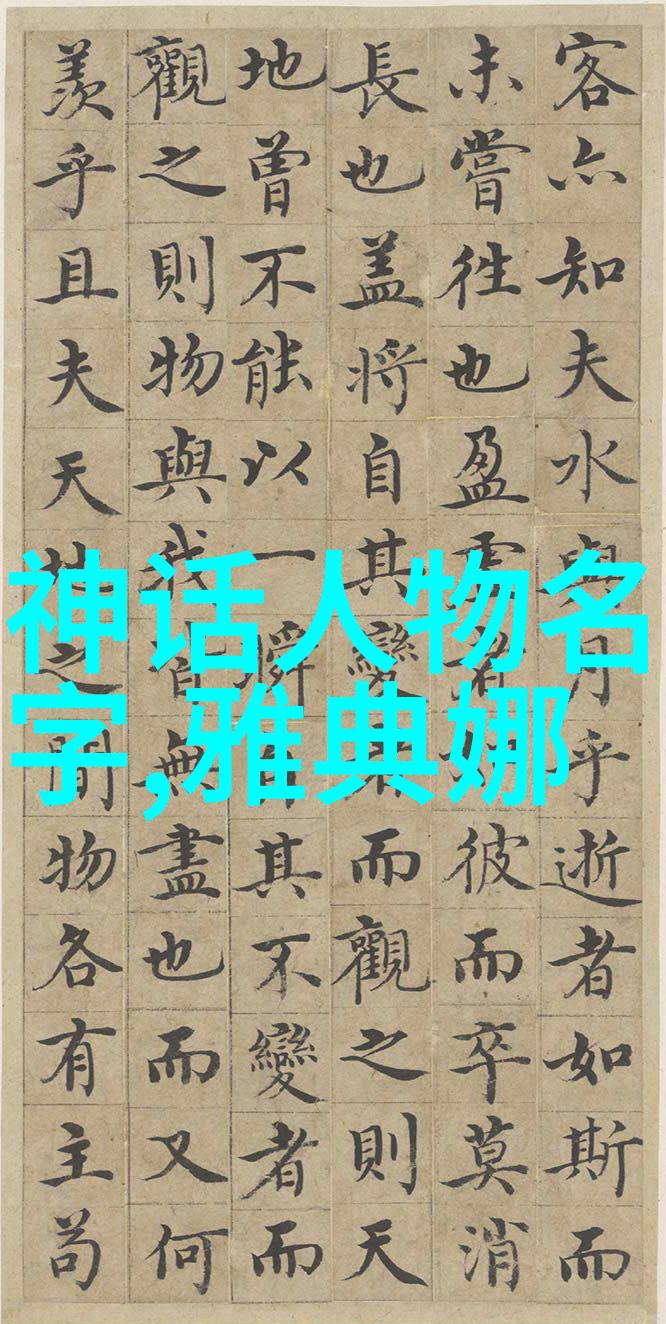 客亦知夫水與月乎逝者如斯而
未嘗往也盈虛者如彼而卒莫消
長也盖將自其變者而觀之則天
地曾不能以一瞬自其不變者而
觀之則物與我皆無盡也而又何
羨乎且夫天地之間物各有主苟
神话人物名
字,雅典娜